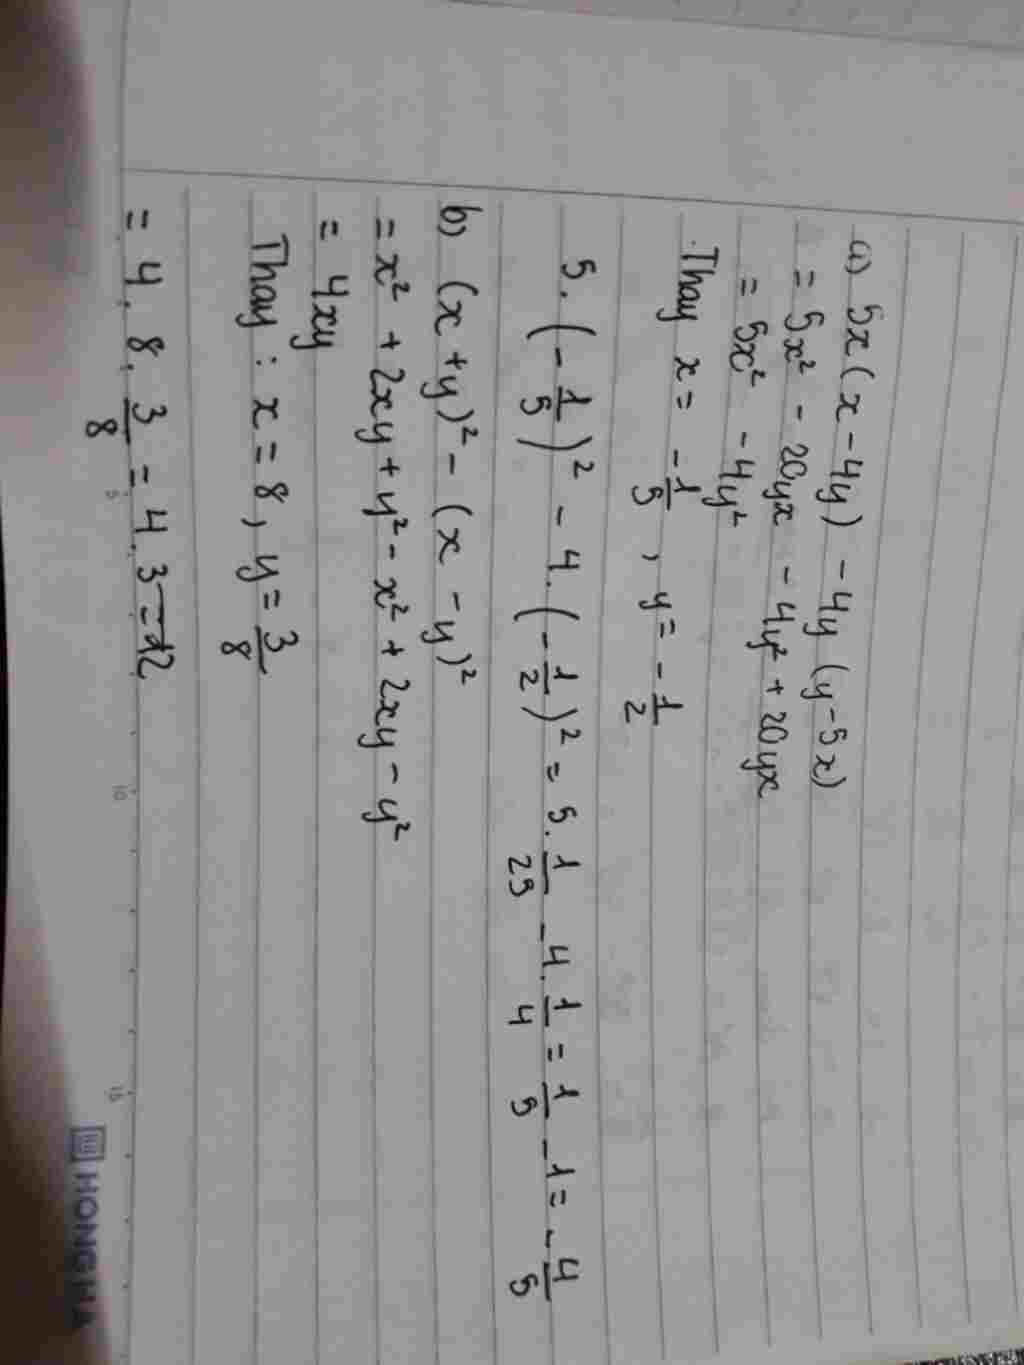 a) 5x(x-4y) - 4y(y-5x)
= 5x² - 20yx - 4y² + 20yx
= 5x² - 4y²
Thay x = -1/5, y = -1/2
5.(-1/5)² - 4.(-1/2)² = 5.1/25 - 4.1/4 = 1/5 - 1 = -4/5
b) (x+y)² - (x-y)²
= x² + 2xy + y² - x² + 2xy - y²
= 4xy
Thay: x = 8, y = 3/8
= 4.8.3/8 = 4.3 = 12
5 10 15
HONG HA